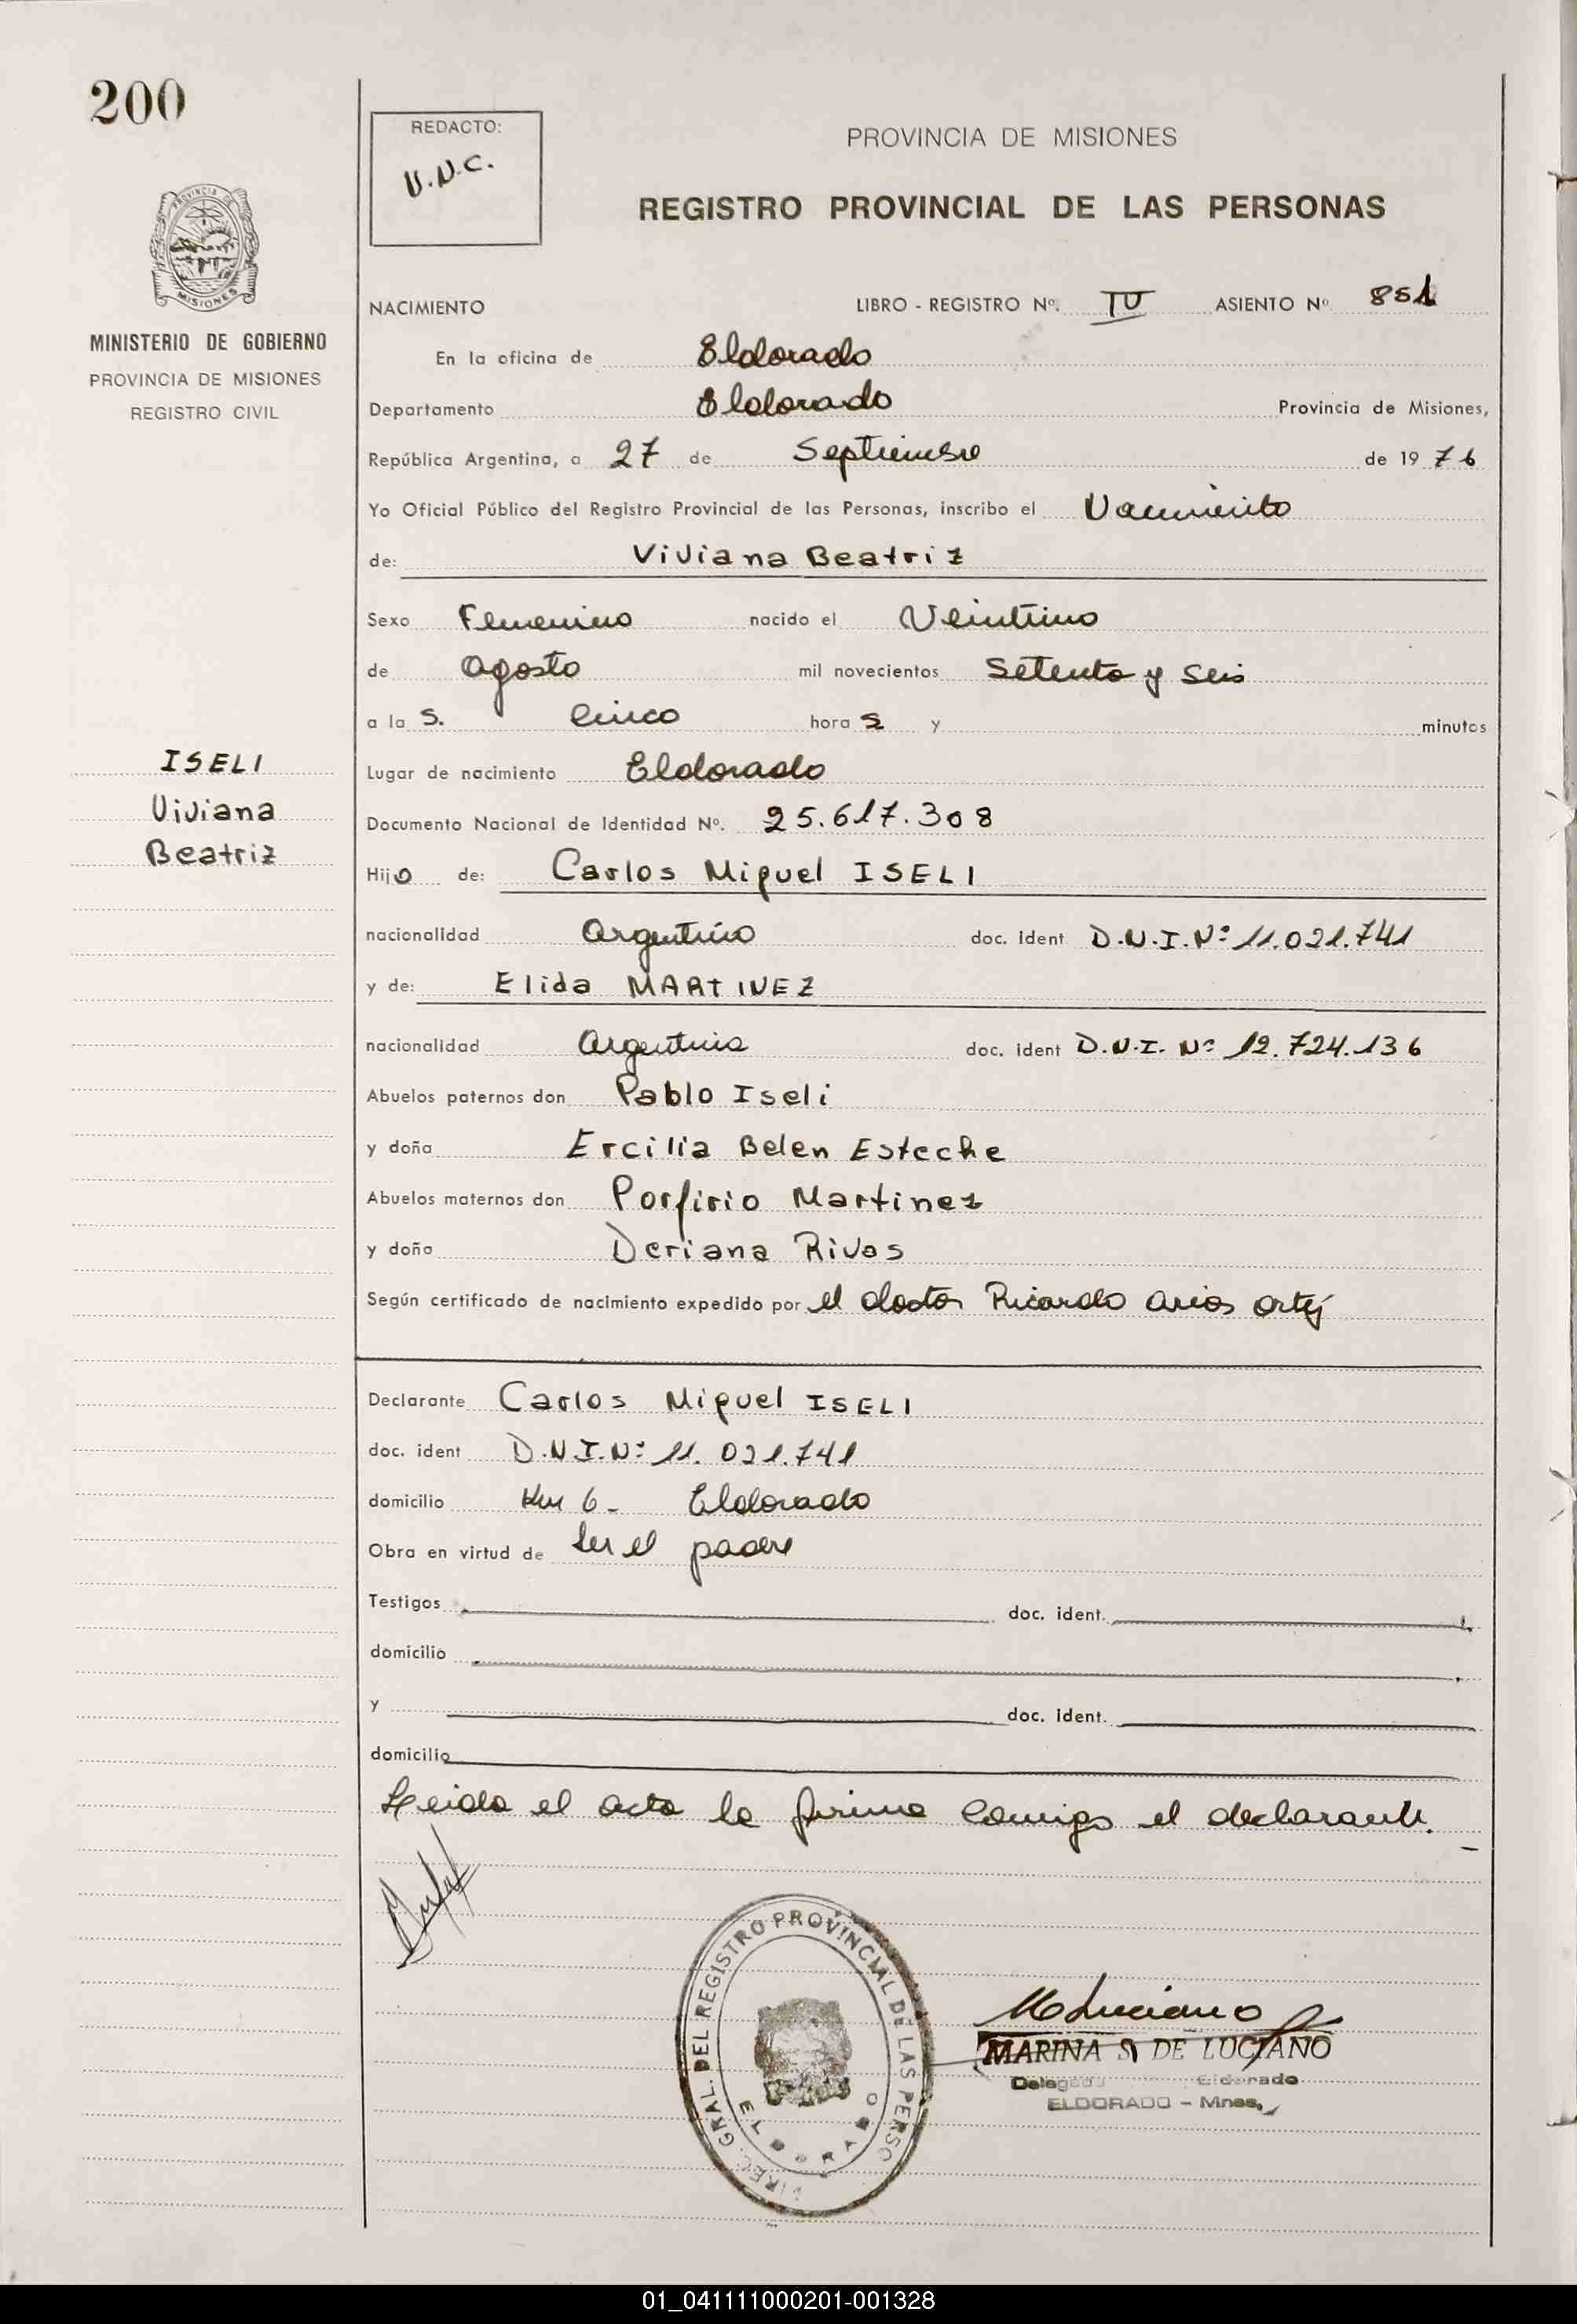 200
REDACTO:
V.N.C.
PROVINCIA DE MISIONES
REGISTRO PROVINCIAL DE LAS PERSONAS
PROVINCIA DE
MISIONES
MINISTERIO DE GOBIERNO
PROVINCIA DE MISIONES
REGISTRO CIVIL
NACIMIENTO LIBRO - REGISTRO Nº. IV ASIENTO Nº 851
En la oficina de Eldorado
Departamento Eldorado Provincia de Misiones,
República Argentina, a 27 de Septiembre de 19 76
Yo Oficial Público del Registro Provincial de las Personas, inscribo el Nacimiento
de: Viviana Beatriz
Sexo Femenino nacido el Veintiuno
de agosto mil novecientos Setenta y Seis
a la s. Cinco hora s y minutos
ISELI
Viviana
Beatriz
Lugar de nacimiento Eldorado
Documento Nacional de Identidad Nº. 25.617.308
Hijo de: Carlos Miguel ISELI
nacionalidad Argentino doc. ident D.N.I.Nº 11.021.741
y de: Elida MARTINEZ
nacionalidad Argentina doc. ident D.N.I. Nº 12.724.136
Abuelos paternos don Pablo Iseli
y doña Ercilia Belen Esteche
Abuelos maternos don Porfirio Martinez
y doña Deriana Rivas
Según certificado de nacimiento expedido por el doctor Ricardo Arios
Declarante Carlos Miguel ISELI
doc. ident D.N.I.Nº 11.021.741
domicilio Km 6- Eldorado
Obra en virtud de Ser el padre
Testigos doc. ident.
domicilio
y doc. ident.
domicilio
Leida el acta la firma comigo el declarante.
DIREC. GRAL. DEL REGISTRO PROVINCIAL DE LAS PERSO
ELDORADO
MLuciano
MARINA S. DE LUCIANO
Delegada Eldorado
ELDORADO - Mnes,
01_041111000201-001328